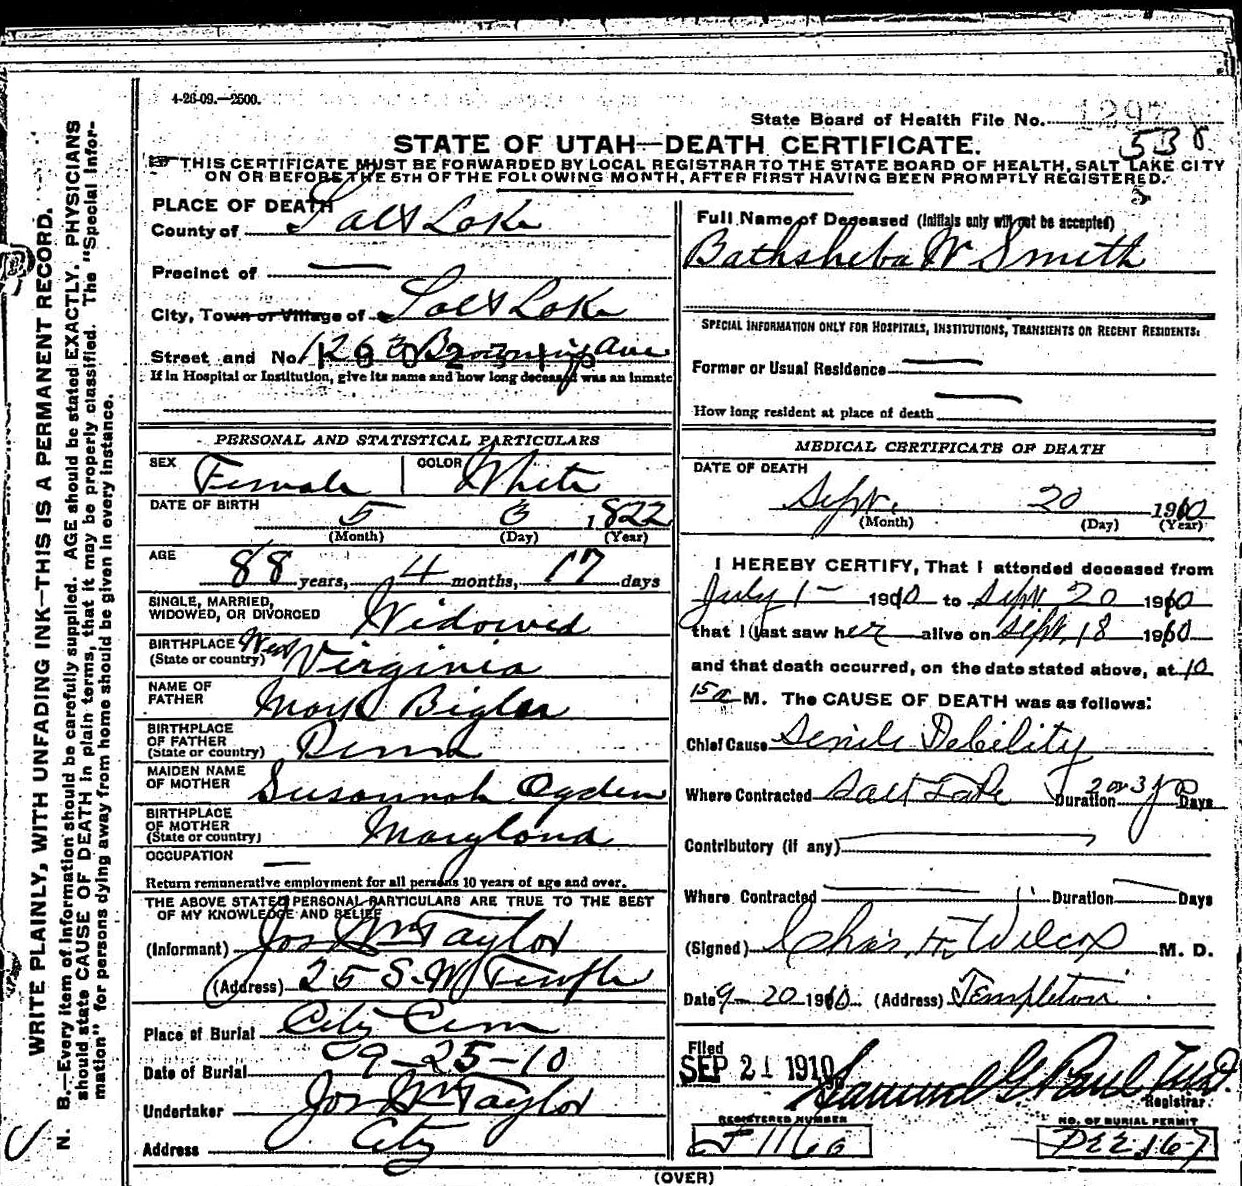 4-26-09.—2500.
State Board of Health File No.
538
STATE OF UTAH—DEATH CERTIFICATE.
THIS CERTIFICATE MUST BE FORWARDED BY LOCAL REGISTRAR TO THE STATE BOARD OF HEALTH, SALT LAKE CITY
ON OR BEFORE THE 5TH OF THE FOLLOWING MONTH, AFTER FIRST HAVING BEEN PROMPTLY REGISTERED.
WRITE PLAINLY, WITH UNFADING INK—THIS IS A PERMANENT RECORD.
N. B.—Every item of information should be carefully supplied. AGE should be stated EXACTLY. PHYSICIANS
should state CAUSE OF DEATH in plain terms, that it may be properly classified. The "Special Infor-
mation" for persons dying away from home should be given in every instance.
PLACE OF DEATH
County of Salt Lake
Precinct of —
City, Town or Village of Salt Lake
Street and No. 1263 Browning Ave
If in Hospital or Institution, give its name and how long deceased was an inmate
PERSONAL AND STATISTICAL PARTICULARS
SEX Female COLOR White
DATE OF BIRTH 5 3 1822
(Month) (Day) (Year)
AGE 88 years, 4 months, 17 days
SINGLE, MARRIED,
WIDOWED, OR DIVORCED Widowed
BIRTHPLACE
(State or country) West Virginia
NAME OF
FATHER Mark Bigler
BIRTHPLACE
OF FATHER
(State or country) Penna
MAIDEN NAME
OF MOTHER Susannah Ogden
BIRTHPLACE
OF MOTHER
(State or country) Maryland
OCCUPATION —
Return remunerative employment for all persons 10 years of age and over.
THE ABOVE STATED PERSONAL PARTICULARS ARE TRUE TO THE BEST
OF MY KNOWLEDGE AND BELIEF
(Informant) Jos Wm Taylor
(Address) 25 S. W Temple
Place of Burial City Cem
Date of Burial 9-25-10
Undertaker Jos Wm Taylor
Address City
Full Name of Deceased (Initials only will not be accepted)
Bathsheba W Smith
SPECIAL INFORMATION ONLY FOR HOSPITALS, INSTITUTIONS, TRANSIENTS OR RECENT RESIDENTS:
Former or Usual Residence —
How long resident at place of death —
MEDICAL CERTIFICATE OF DEATH
DATE OF DEATH
Sept. 20 1910
(Month) (Day) (Year)
I HEREBY CERTIFY, That I attended deceased from
July 1- 1910 to Sept 20 1910
that I last saw her alive on Sept. 18 1910
and that death occurred, on the date stated above, at 10
15 a M. The CAUSE OF DEATH was as follows:
Chief Cause Senile Debility
Where Contracted Salt Lake Duration 2 or 3 yrs Days
Contributory (if any)
Where Contracted Duration Days
(Signed) Chas. F. Wilcox M. D.
Date 9-20 1910 (Address) Templeton
Filed
SEP 21 1910 Samuel G Paul M.D.
Registrar.
REGISTERED NUMBER NO. OF BURIAL PERMIT
(OVER)